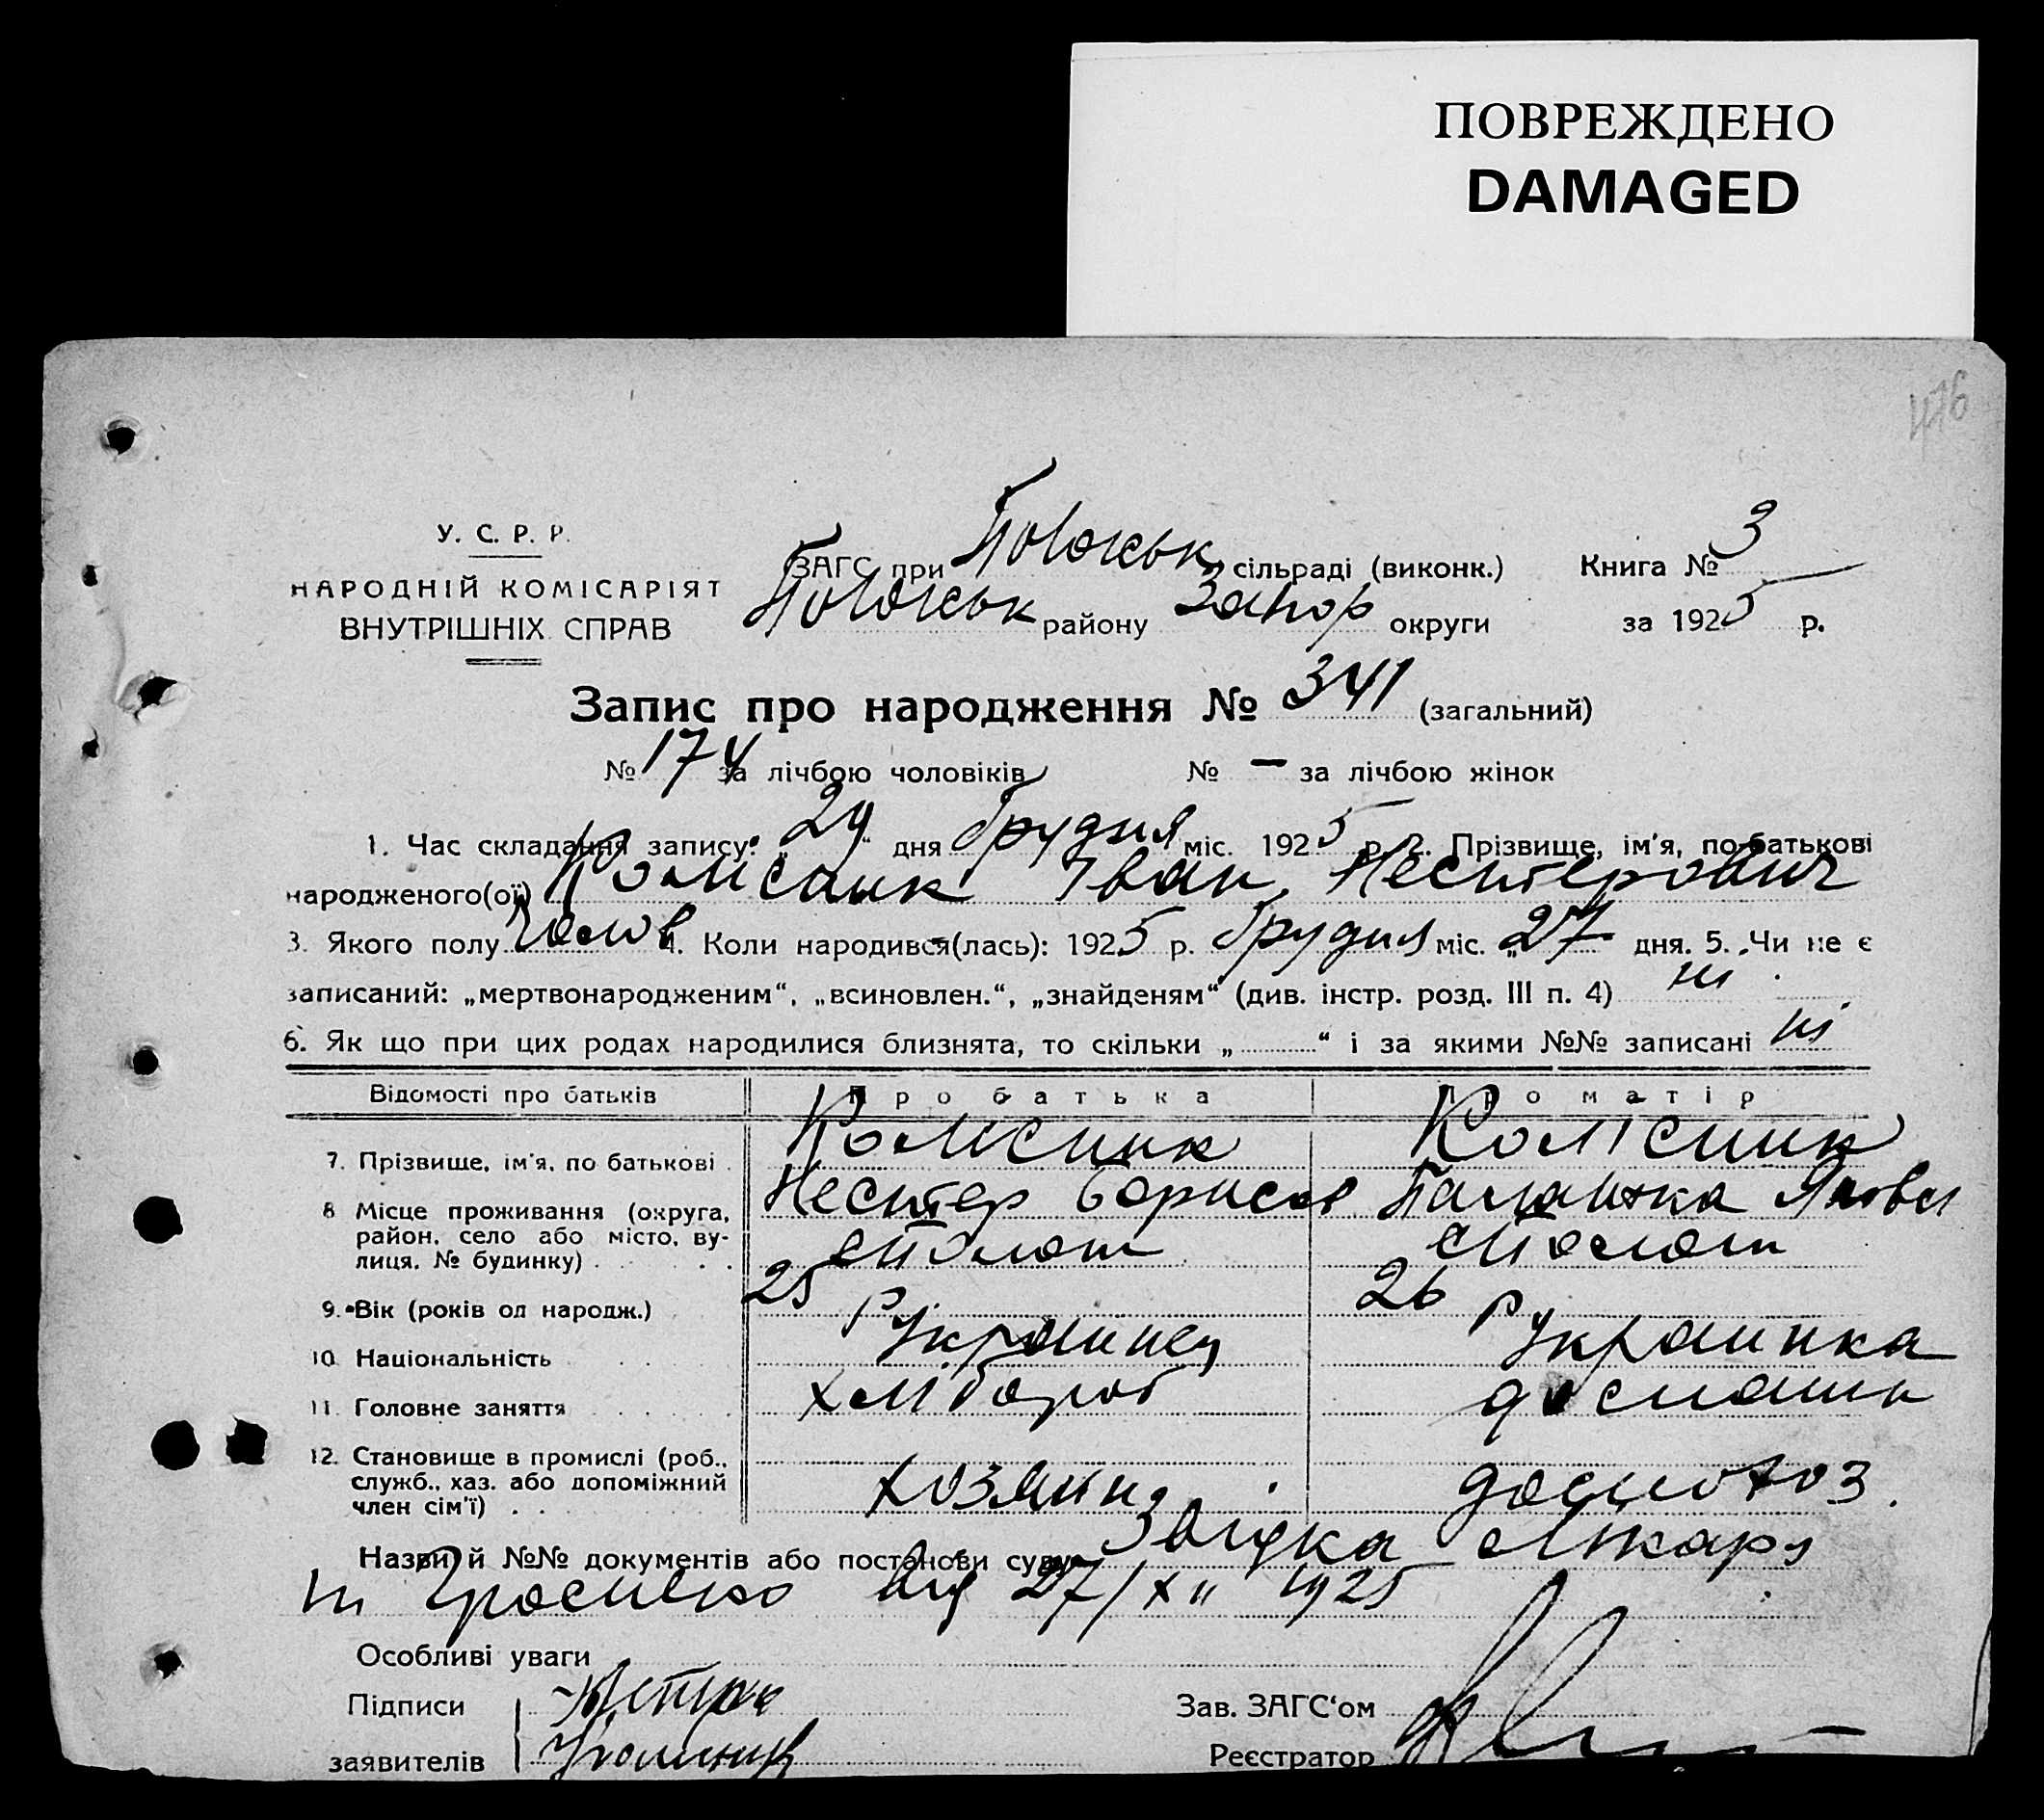 ПОВРЕЖДЕНО
DAMAGED
416
У. С. Р. Р.
НАРОДНІЙ КОМІСАРІЯТ
ВНУТРІШНІХ СПРАВ
ЗАГС при сільраді (виконк.) Книга № 3
району Запор округи за 1925 р.
Запис про народження № 341 (загальний)
№ 174 за лічбою чоловіків № — за лічбою жінок
1. Час складання запису: „29“ дня Грудня міс. 1925 р. 2. Прізвище, ім'я, по-батькові
народженого(ої) Іван Нестерович
3. Якого полу Чолов 4. Коли народився(лась): 1925 р. Грудня міс. „27 дня. 5. Чи не є
записаний: „мертвонародженим“, „всиновлен.“, „знайденям“ (див. інстр. розд. III п. 4) ні
6. Як що при цих родах народилися близнята, то скільки „ “ і за якими №№ записані ні
Відомості про батьків Про батька Про матір
7. Прізвище, ім'я, по батькові
8 Місце проживання (округа, Нестер Борисов Палажка Яковл
район, село або місто, ву-
лиця, № будинку)
9. Вік (років од народж.) 25 р 26 р
10. Національність Украинец Украинка
11. Головне заняття хлібороб
12. Становище в промислі (роб.,
служб., хаз. або допоміжний
член сім'ї) хозяин
Назви й №№ документів або постанови суду Звідка лікаря
від 27/XII 1925
Особливі уваги
Підписи Зав. ЗАГС'ом
заявителів Реєстратор